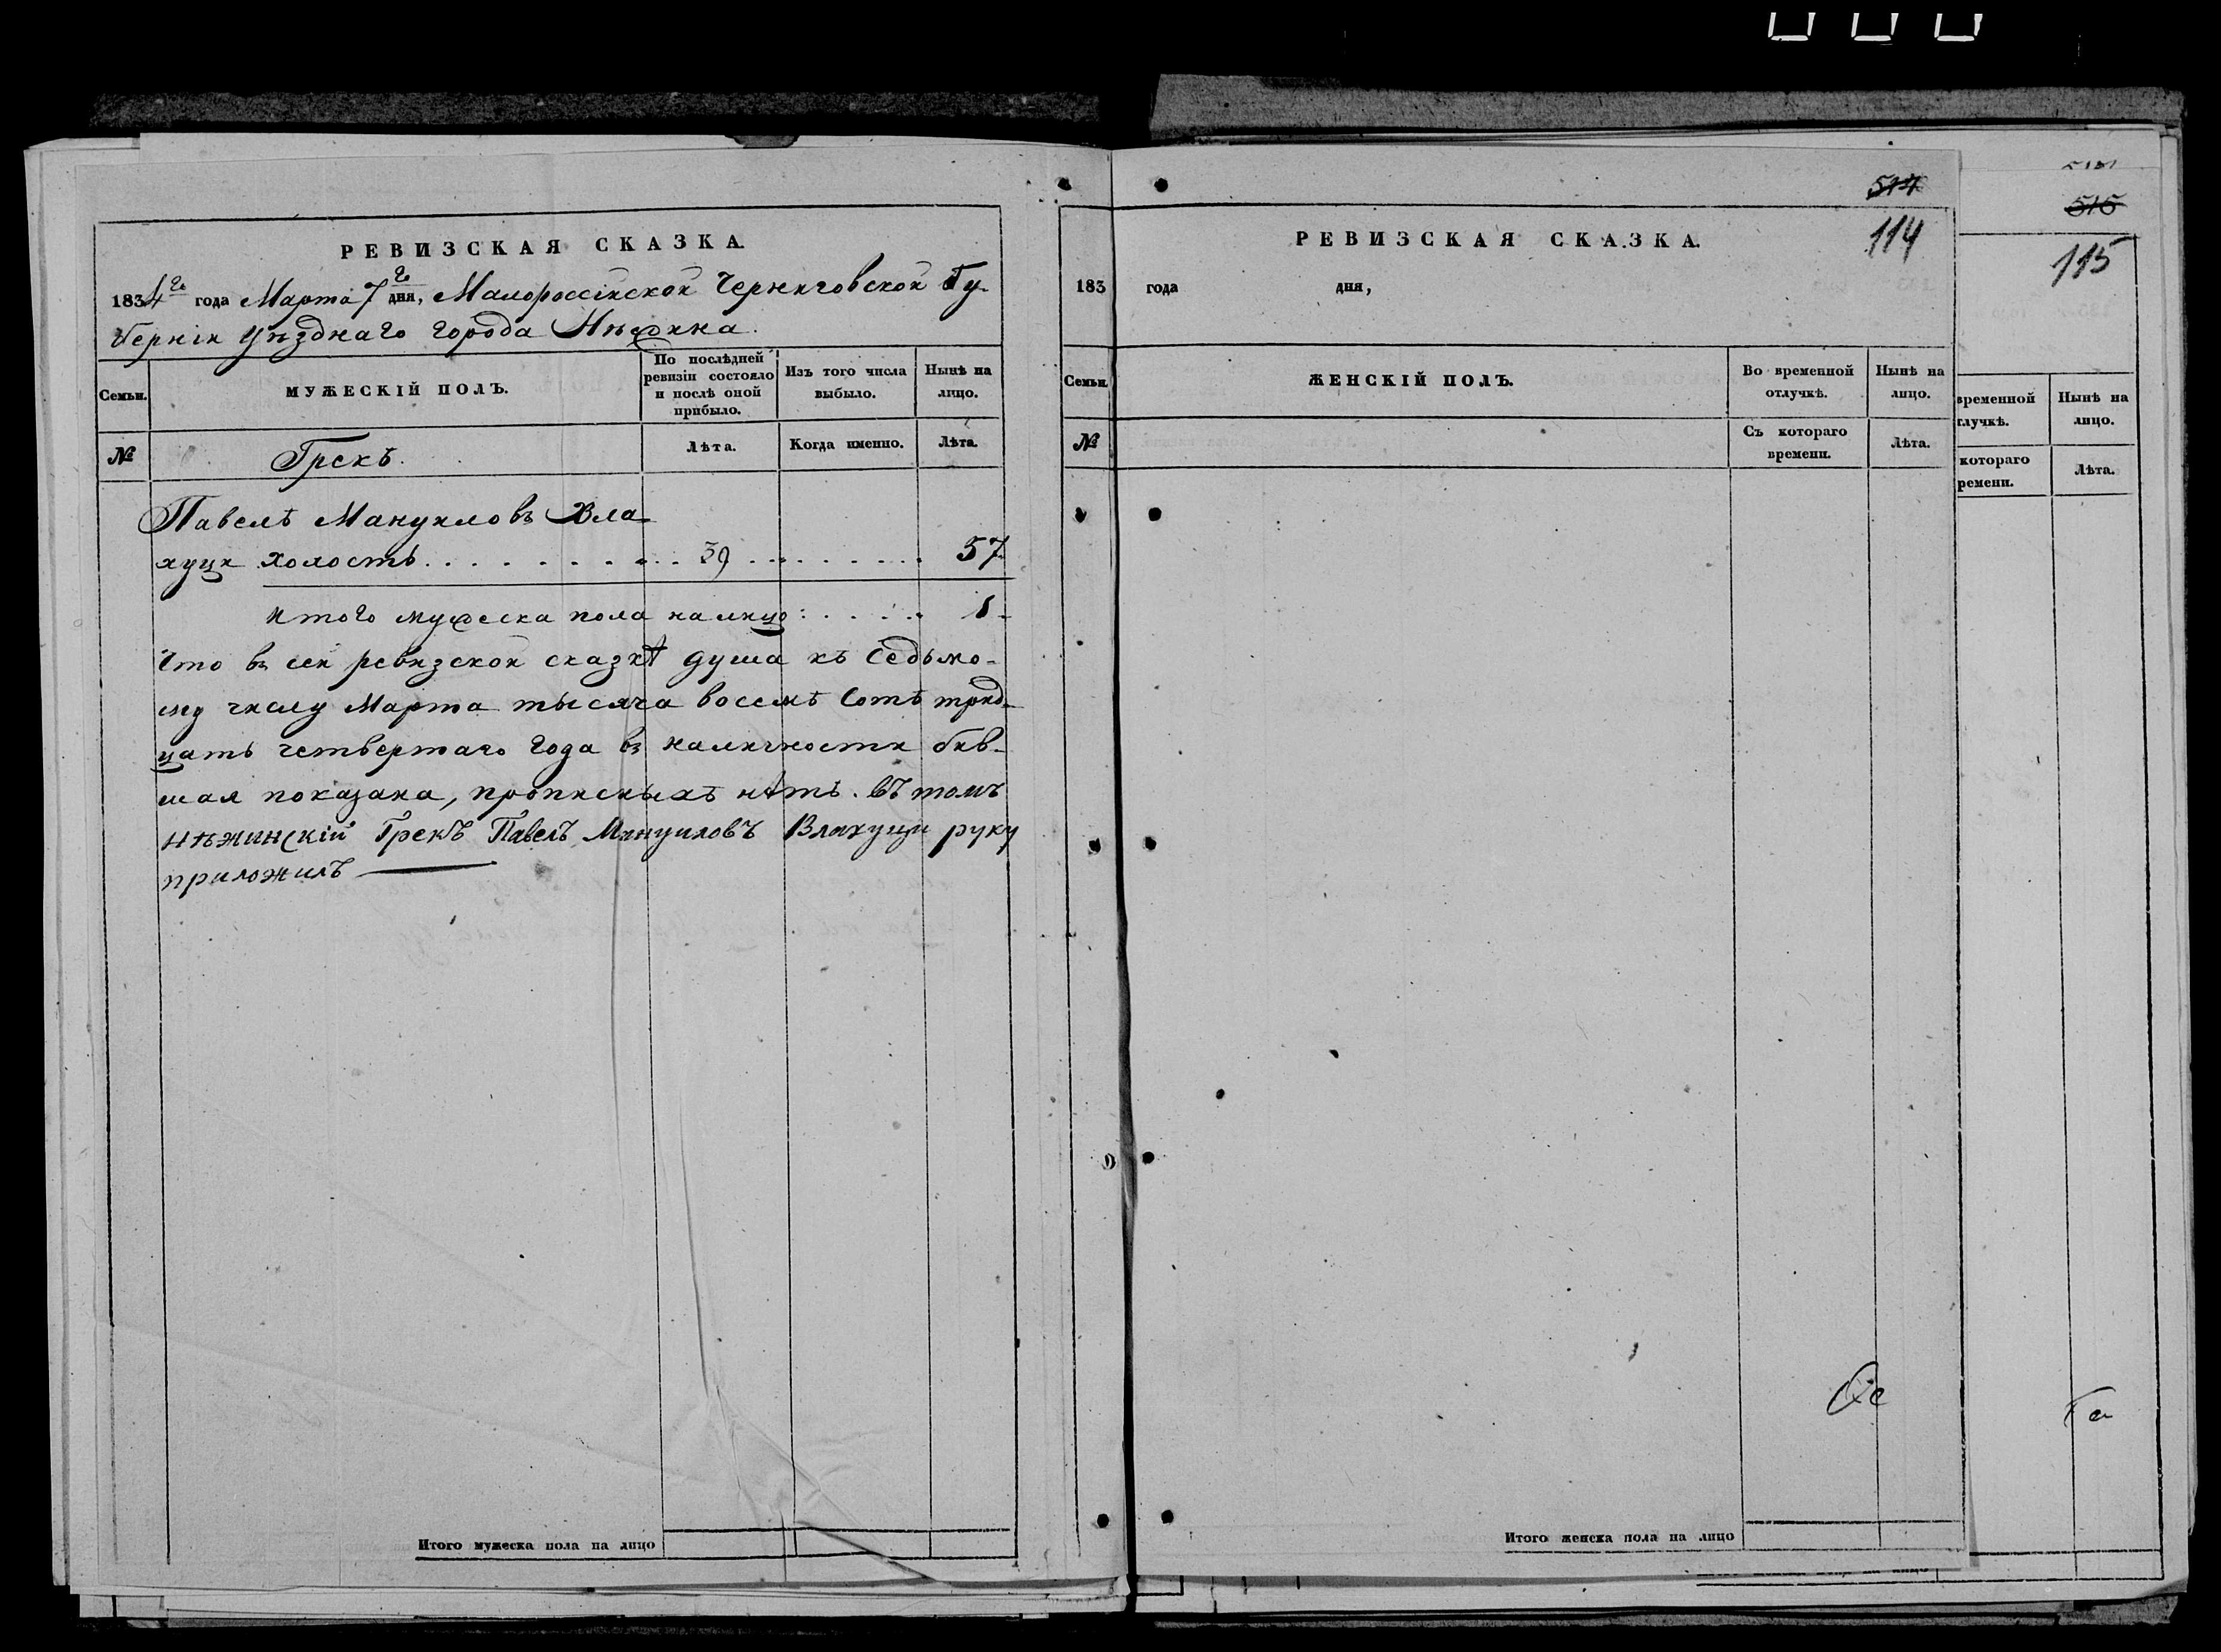 РЕВИЗСКАЯ СКАЗКА.
1834го года Марта 7го дня, Малороссійской Черниговской Гу-
берніи уѣзднаго города Нѣжина.
Семьи.
МУЖЕСКІЙ ПОЛЪ.
По послѣдней ревизіи состояло и послѣ оной прибыло.
Изъ того числа выбыло.
Нынѣ на лицо.
№
Грекъ.
Лѣта.
Когда именно.
Лѣта.
Павелъ Мануиловъ Вла-
хуци холостъ . . . . . . . 39 . . . . . . . 57
Итого мужеска пола налицо: . . . . . 1
Что въ сей ревизской сказкѣ душа къ седьмо-
му числу Марта тысяча восемъ сотъ трид-
цать четвертаго года въ наличности бив-
шая показана, прописныхъ нѣтъ. Въ томъ
нѣжинскій Грекъ Павелъ Мануиловъ Влахуци руку
приложилъ
Итого мужеска пола на лицо
514
114
РЕВИЗСКАЯ СКАЗКА.
183 года дня,
Семьи.
ЖЕНСКІЙ ПОЛЪ.
Во временной отлучкѣ.
Нынѣ на лицо.
№
Съ котораго времени.
Лѣта.
Итого женска пола на лицо
515
115
временной
тлучкѣ.
Нынѣ на лицо.
котораго
ремени.
Лѣта.